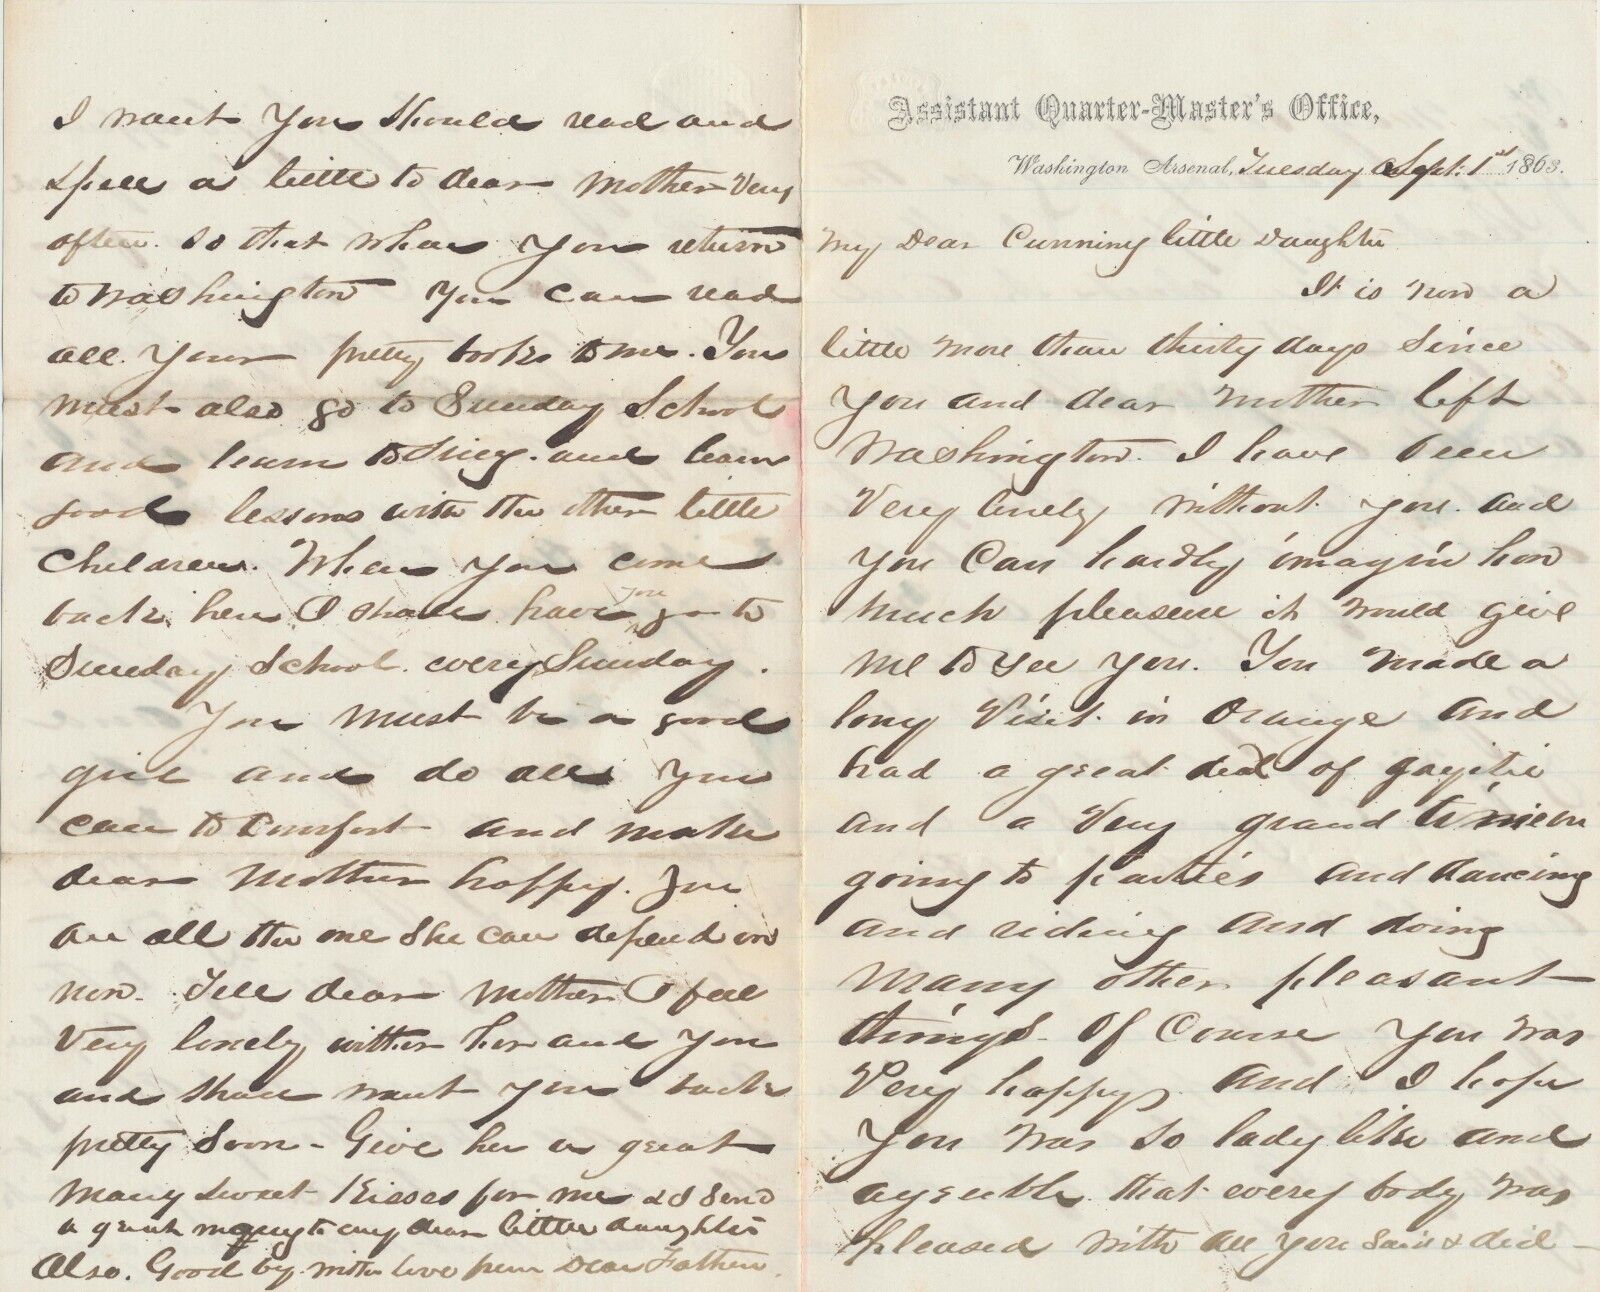 Assistant Quarter-Master's Office,
Washington Arsenal, Tuesday Sept. 1st 1863.
My Dear Cunning little Daughter
It is now a
little more than thirty days since
you and dear Mother left
Washington. I have been
Very lonely without you. and
you Can hardly imagin how
much pleasure it would give
me to see you. You made a
long Visit in Orange and
had a great deal of gayitie
and a Very grand time in
going to parties and dancing
and riding and doing
many other pleasant
things. Of Course you was
Very happy and I hope
you was so lady like and
agreuble that every body was
pleased with all you said & did -
I want you should read and
spell a little to dear Mother Very
often. so that when you return
to Washington you can read
all your pretty books to me. You
must also go to Sunday School
and learn to sing. and learn
good lessons with the other little
Children. When you come
back here I shall have you go to
Sunday School every Sunday.
You must be a good
girl and do all you
can to Comfort and make
dear Mother happy. You
are all the one she can depend on
now. Tell dear Mother I feel
Very lonely without her and you
and shall want you back
pretty soon - Give her a great
many sweet Kisses for me & I send
a great many to my dear little daughter
Also. Good by with love from Dear Father.